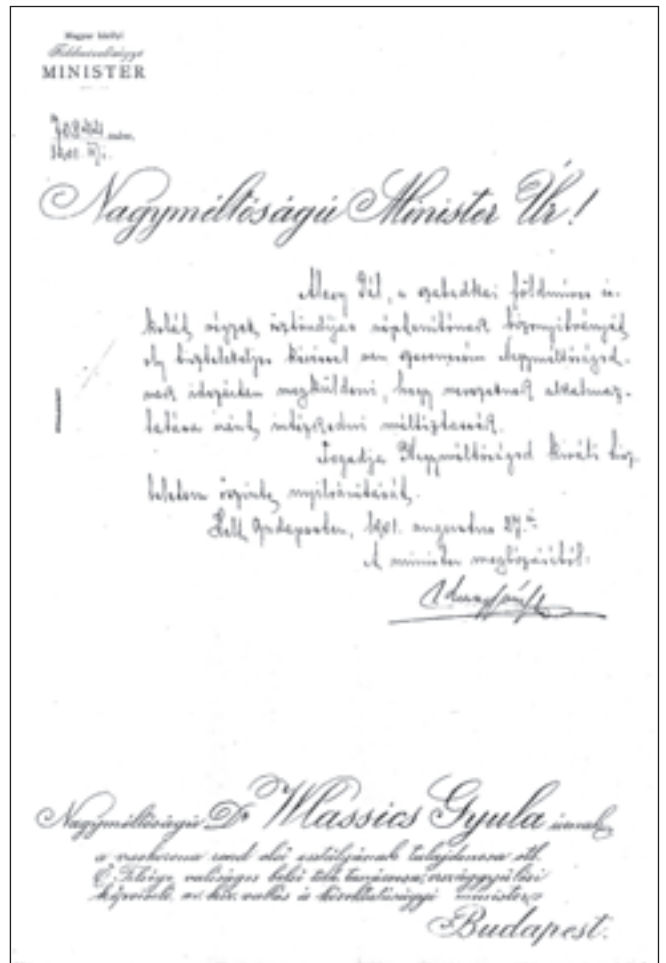 Magyar királyi
Földmivelésügyi
MINISTER
szám.
1901
Nagyméltóságú Minister Úr!
Pál, a szabadkai földmives is-
kolát végzett ösztöndíjas néptanítónak bizonyítványát
oly tiszteletteljes kéréssel van szerencsém Nagyméltóságod-
nak idezárva megküldeni, hogy nevezettnek alkalmaz-
tatása iránt intézkedni méltóztassék.
Fogadja Nagyméltóságod kiváló tisz-
teletem őszinte nyilvánítását.
Kelt Budapesten, 1901. augusztus 27.
A minister megbízásából:
Nagyméltóságú Dr Wlassics Gyula úrnak
a vaskorona rend első osztályának tulajdonosa stb.
Ő Felsége valóságos belső titk. tanácsosa, országgyűlési
képviselő, m. kir. vallás és közoktatásügyi minister
Budapest.